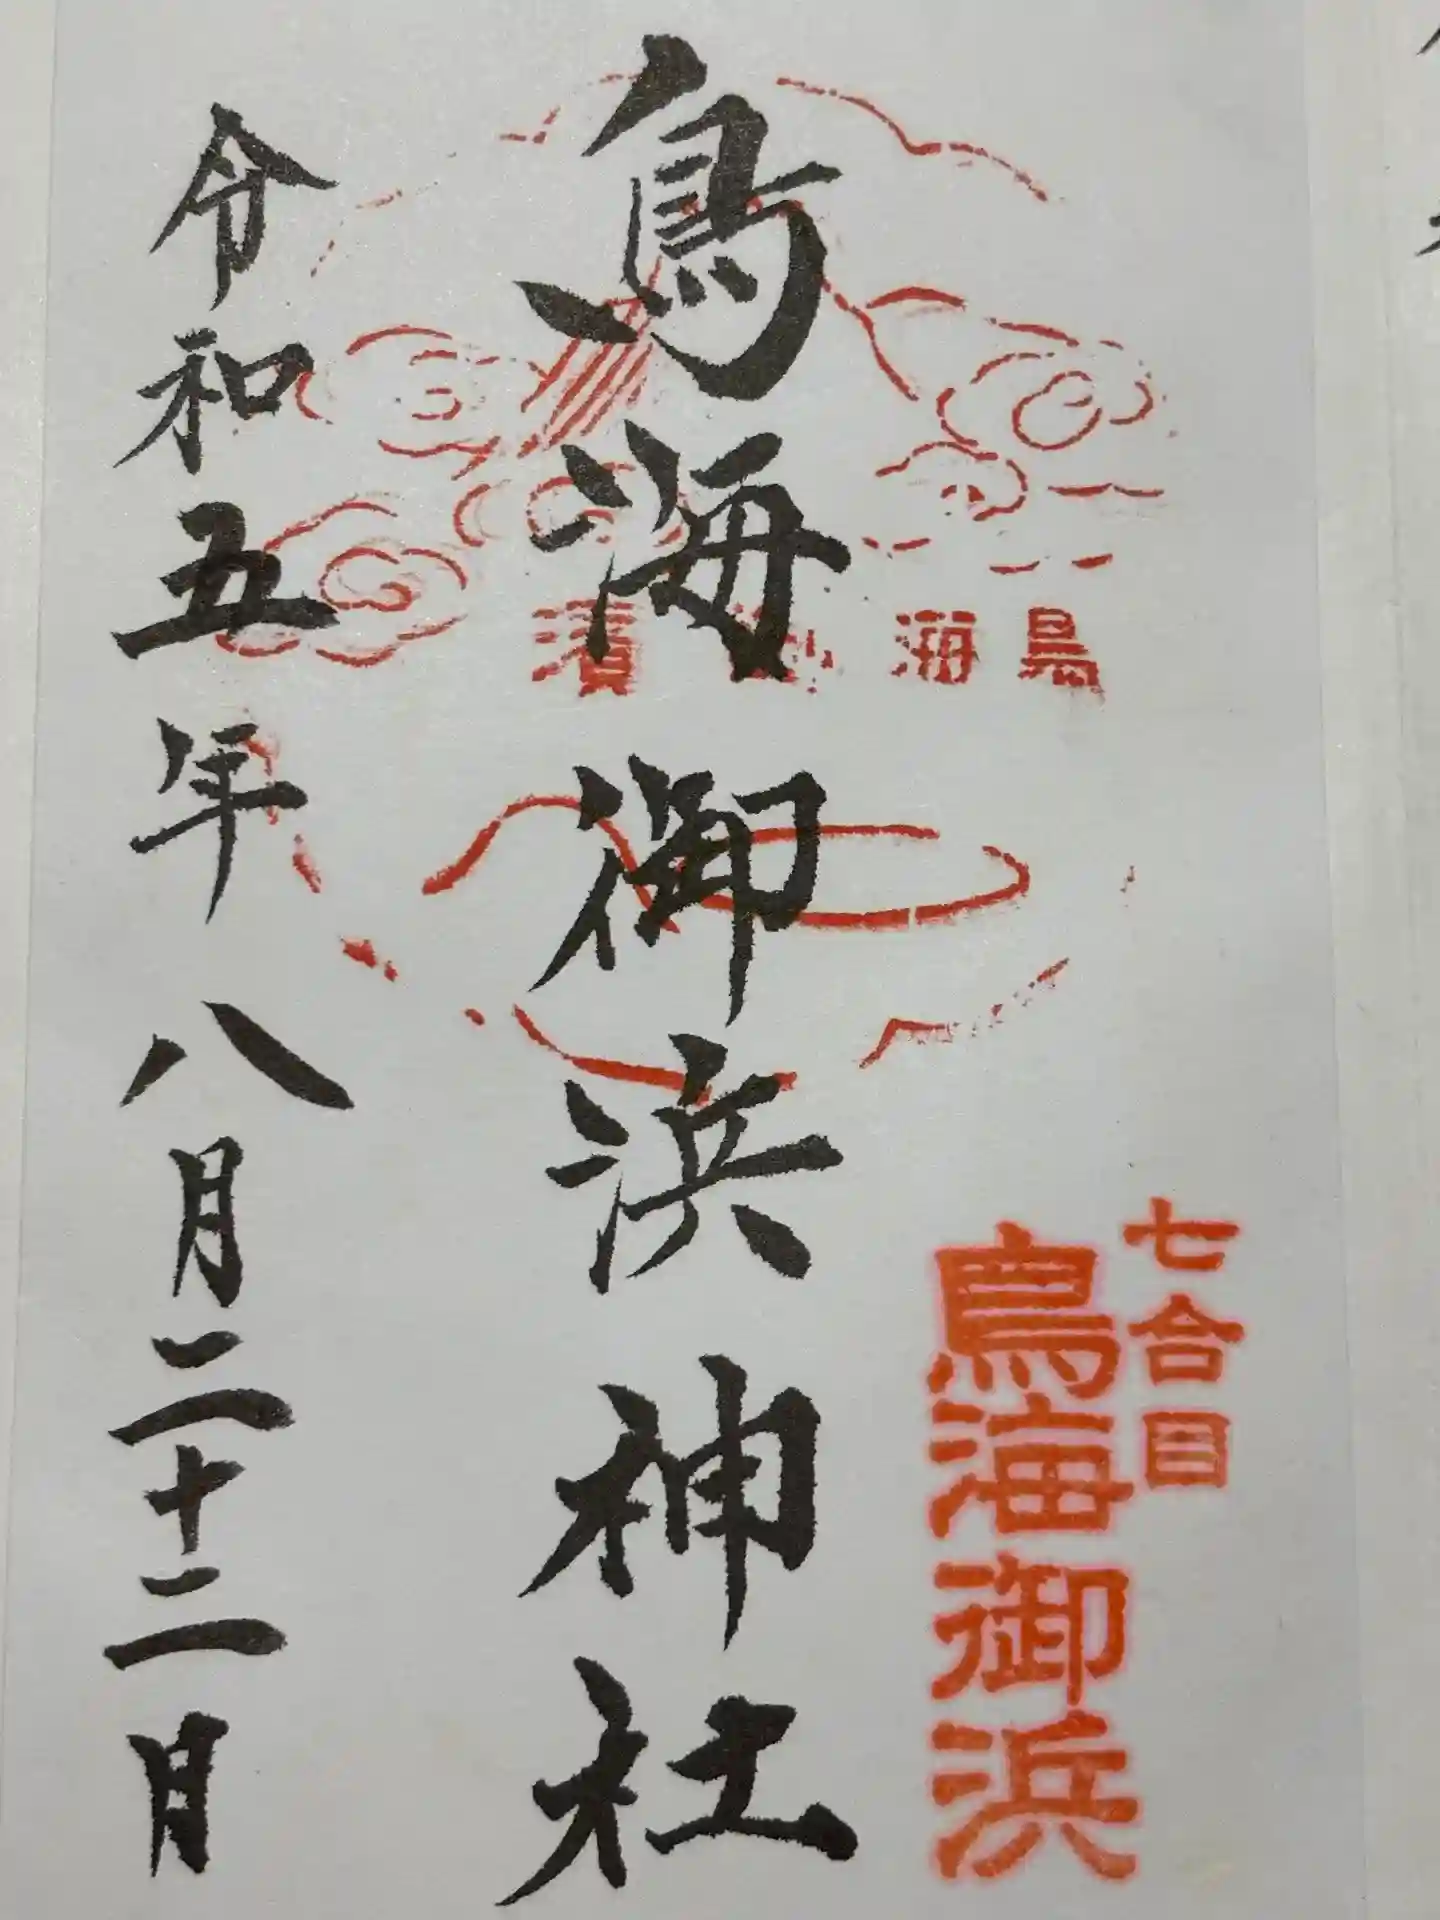 七合目
鳥海御浜
鳥海濱
鳥海御浜神社
令和五年八月二十二日